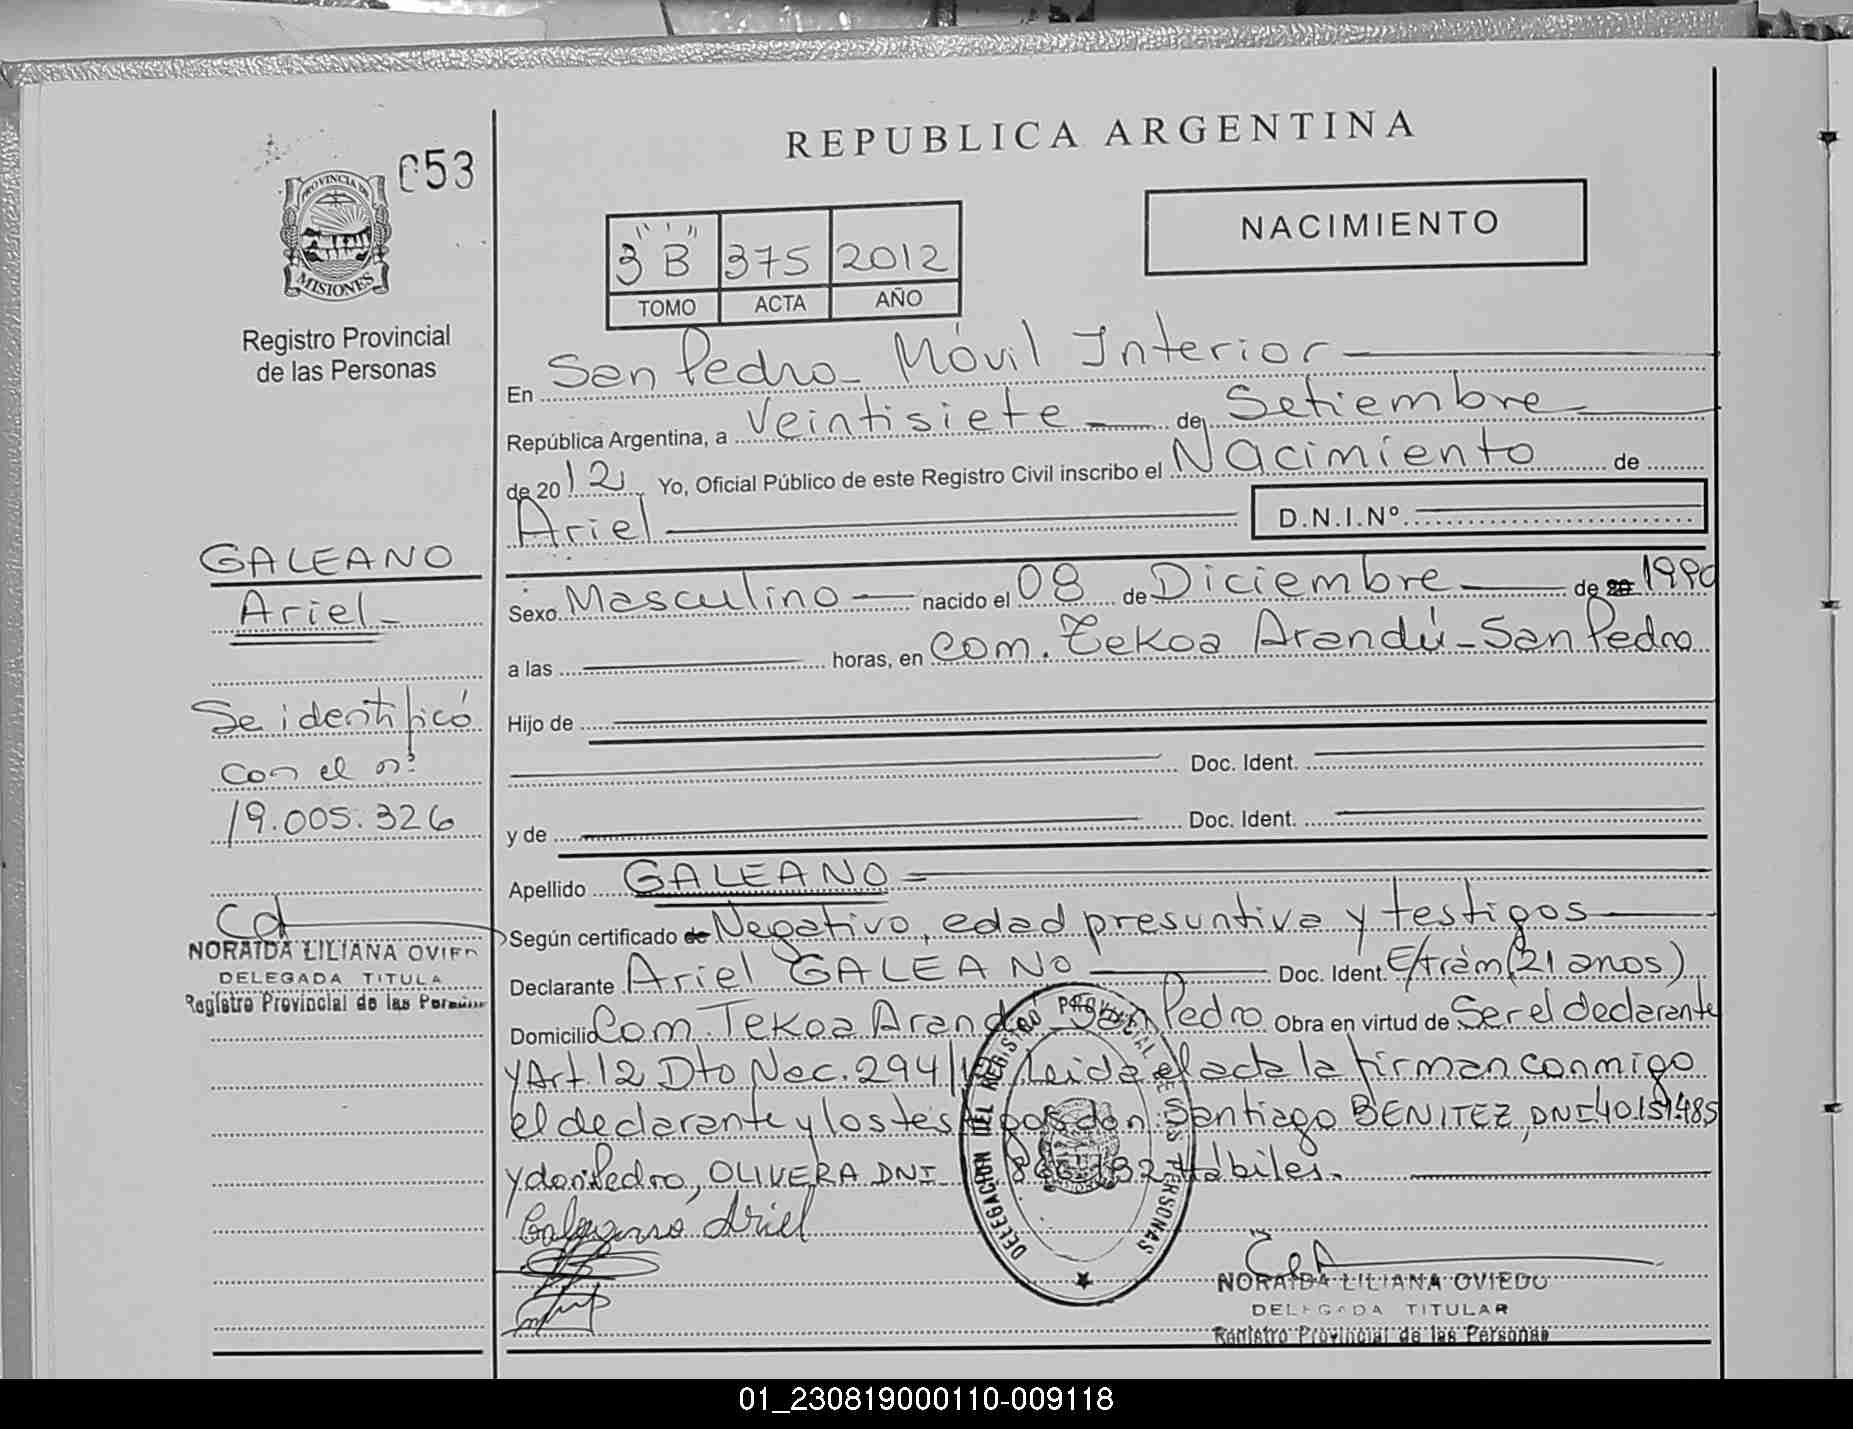 REPUBLICA ARGENTINA
053
PROVINCIA DE
MISIONES
Registro Provincial
de las Personas
NACIMIENTO
3 "B" 375 2012
TOMO ACTA AÑO
En San Pedro - Móvil Interior
República Argentina, a Veintisiete de Setiembre
de 2012 Yo, Oficial Público de este Registro Civil inscribo el Nacimiento de
Ariel D.N.I.Nº
Sexo Masculino nacido el 08 de Diciembre de 1990
a las horas, en Com. Tekoa Arandú - San Pedro
Hijo de
Doc. Ident.
y de Doc. Ident.
Apellido GALEANO
Según certificado de Negativo, edad presuntiva y testigos
Declarante Ariel GALEANO Doc. Ident. E/trám (21 años)
Domicilio Com. Tekoa Arandú San Pedro Obra en virtud de Ser el declarante
y Art. 12 Dto Nec. 294/ Leída el acta la firman conmigo
el declarante y los testigos don Santiago BENITEZ, DNI 40.151.485
y don Pedro, OLIVERA DNI Hábiles.
Galeano Ariel
DELEGACION DEL REGISTRO PROVINCIAL DE LAS PERSONAS
NORAIDA LILIANA OVIEDO
DELEGADA TITULAR
Registro Provincial de las Personas
GALEANO
Ariel -
Se identificó
con el nº
19.005.326
NORAIDA LILIANA OVIED
DELEGADA TITULA
Registro Provincial de las Personas
01_230819000110-009118